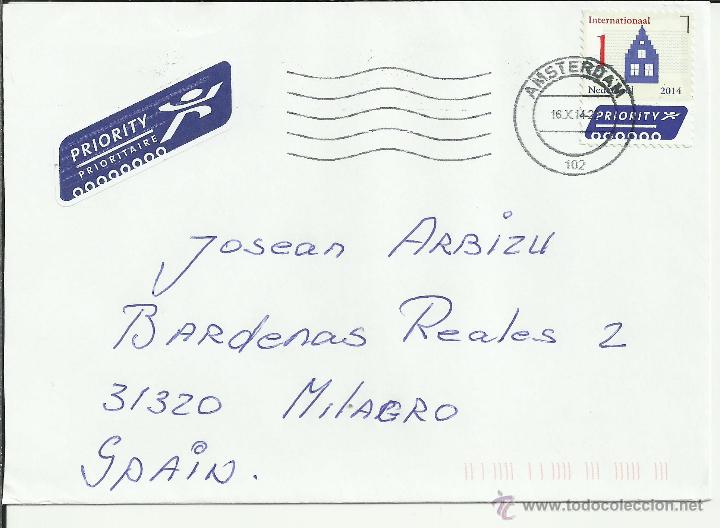 Internationaal
1
Nederland 2014
PRIORITY
AMSTERDAM
16.X.14
102
PRIORITY
PRIORITAIRE
Josean ARBIZU
BARdenas Reales 2
31320 MilAGRO
SPAiN.
www.todocoleccion.net